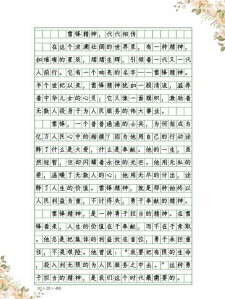 雷锋精神，代代相传
在这个波澜壮阔的世界里，有一种精神，
如璀璨的星辰，熠熠生辉，引领着一代又一代
人前行。它有一个响亮的名字——雷锋精神。
半个世纪以来，雷锋精神犹如一股清流，滋养
着中华儿女的心灵；它又像一面旗帜，激励着
无数人投身于为人民服务的伟大事业。
雷锋，一个普普通通的士兵，为何能成为
亿万人民心中的楷模？因为他用自己的行动诠
释了什么是大爱，什么是奉献。他的一生，虽
然短暂，但却闪耀着永恒的光芒。他用无私的
爱，温暖了无数人的心田。他用无悔的付出，诠
释了人生的价值。雷锋精神，就是那种始终以
人民利益为重，不计得失、勇于奉献的精神。
雷锋精神，是一种勇于担当的精神。在雷
锋看来，人生的价值在于奉献，而不在于索取。
他总是把集体的利益放在首位，勇于承担责
任，不畏艰险。他曾说：“我要把有限的生命，
投入到无限的为人民服务之中去。”这种勇
于担当的精神，是我们这个时代最需要的。
20 × 20 = 400